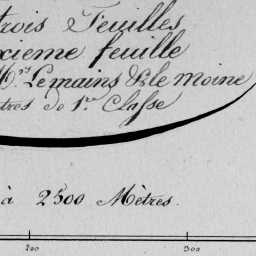 trois Feuilles
xieme feuille
M.rs Lemains & le Moine
tres de 1.re Classe
à 2500 Mètres.
200 300